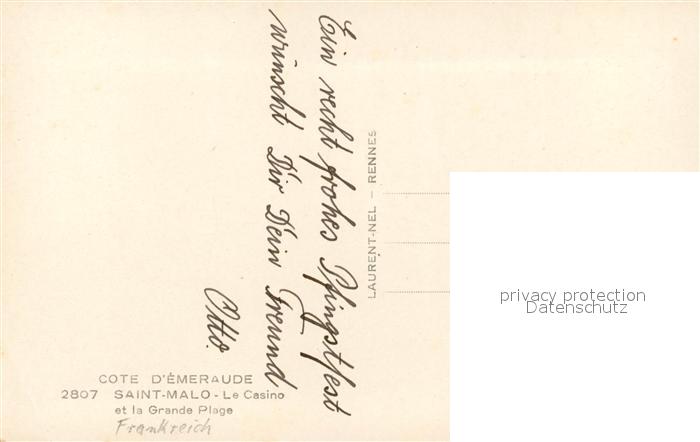 Ein recht frohes Pfingstfest
wünscht Dir Dein Freund
Otto.
LAURENT-NEL – RENNES
COTE D'ÉMERAUDE
2807 SAINT-MALO - Le Casino
et la Grande Plage
Frankreich
privacy protection
Datenschutz